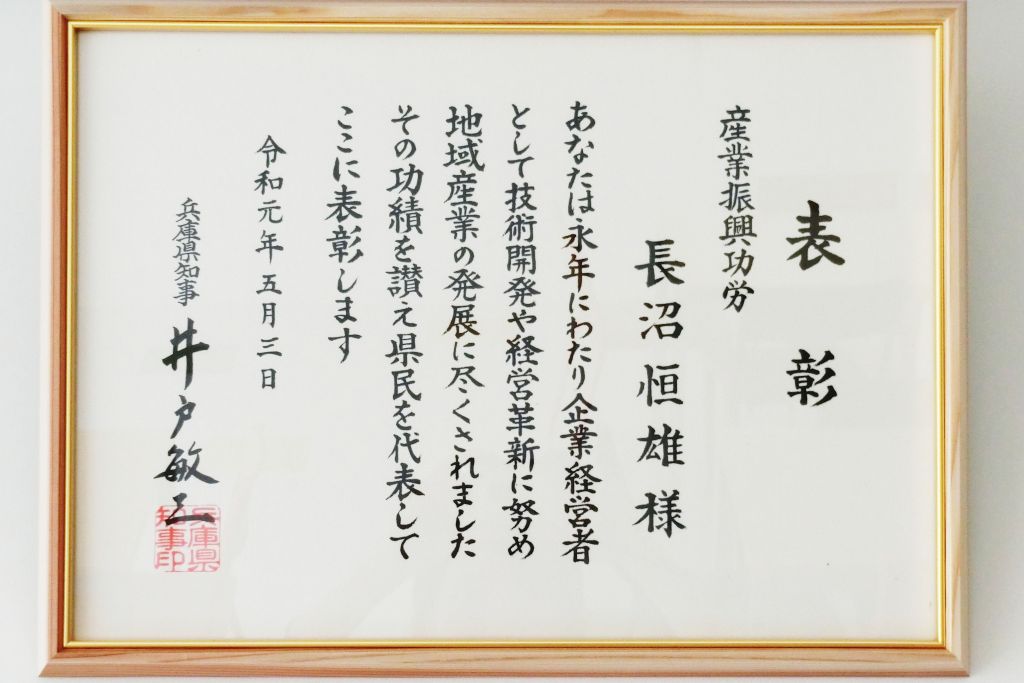 表彰
産業振興功労
長沼恒雄様
あなたは永年にわたり企業経営者
として技術開発や経営革新に努め
地域産業の発展に尽くされました
その功績を讃え県民を代表して
ここに表彰します
令和元年五月三日
兵庫県知事 井戸敏三
兵庫県
知事印